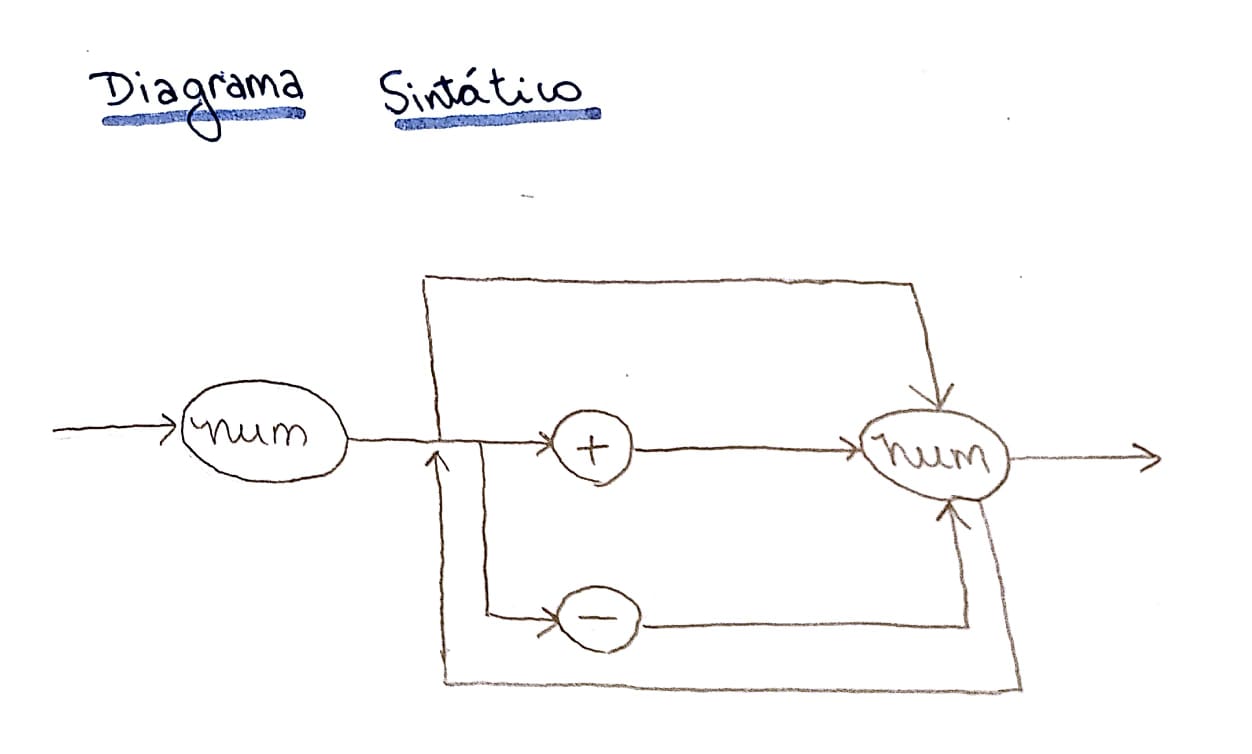 Diagrama Sintático
num + num
−